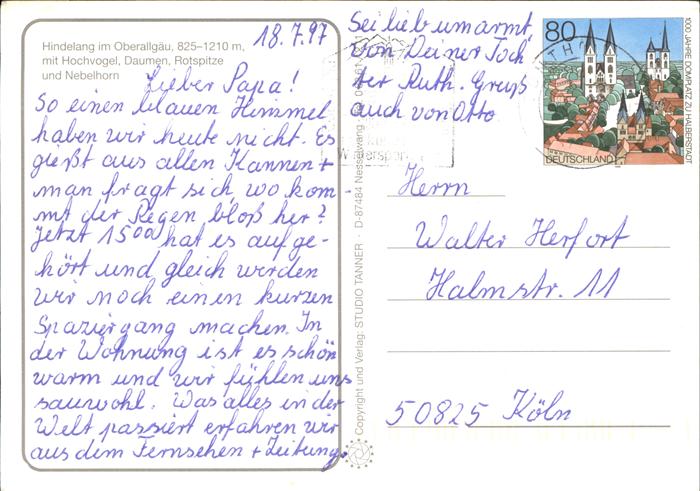 Hindelang im Oberallgäu, 825–1210 m,
mit Hochvogel, Daumen, Rotspitze
und Nebelhorn
18.7.97
Lieber Papa!
So einen blauen Himmel
haben wir heute nicht. Es
gießt aus allen Kannen +
man fragt sich, wo kom-
mt der Regen bloß her?
Jetzt 15 00 hat es aufge-
hört und gleich werden
wir noch einen kurzen
Spaziergang machen. In
der Wohnung ist es schön
warm und wir fühlen uns
sauwohl. Was alles in der
Welt passiert erfahren wir
aus dem Fernsehen + Zeitung.
Sei lieb umarmt,
von Deiner Toch
ter Ruth. Gruß
auch von Otto
Copyright und Verlag: STUDIO TANNER · D-87484 Nesselwang
80
DEUTSCHLAND
1000 JAHRE DOMPLATZ ZU HALBERSTADT
Wintersport
Herrn
Walter Herfort
Halmstr. 11
50825 Köln